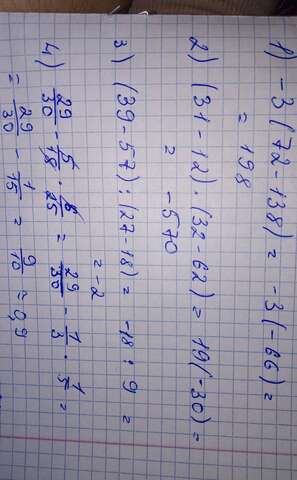 1) -3(72-138) = -3(-66) =
= 198
2) (31-12)·(32-62) = 19(-30) =
= -570
3) (39-57):(27-18) = -18:9 =
= -2
4) 29/30 - 5/18 · 6/25 = 29/30 - 1/3 · 1/5 =
= 29/30 - 1/15 = 9/10 = 0,9